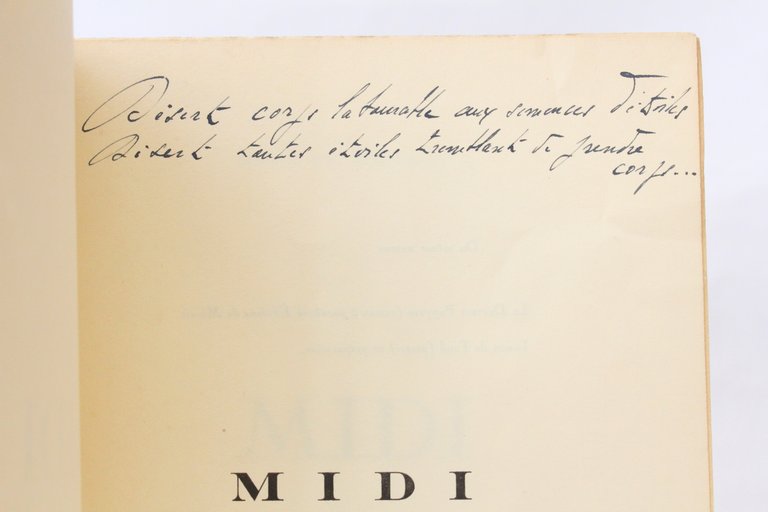 Désert corps labourable aux semences d'étoiles
Désert toutes étoiles tremblant de prendre
corps...
MIDI
MIDI